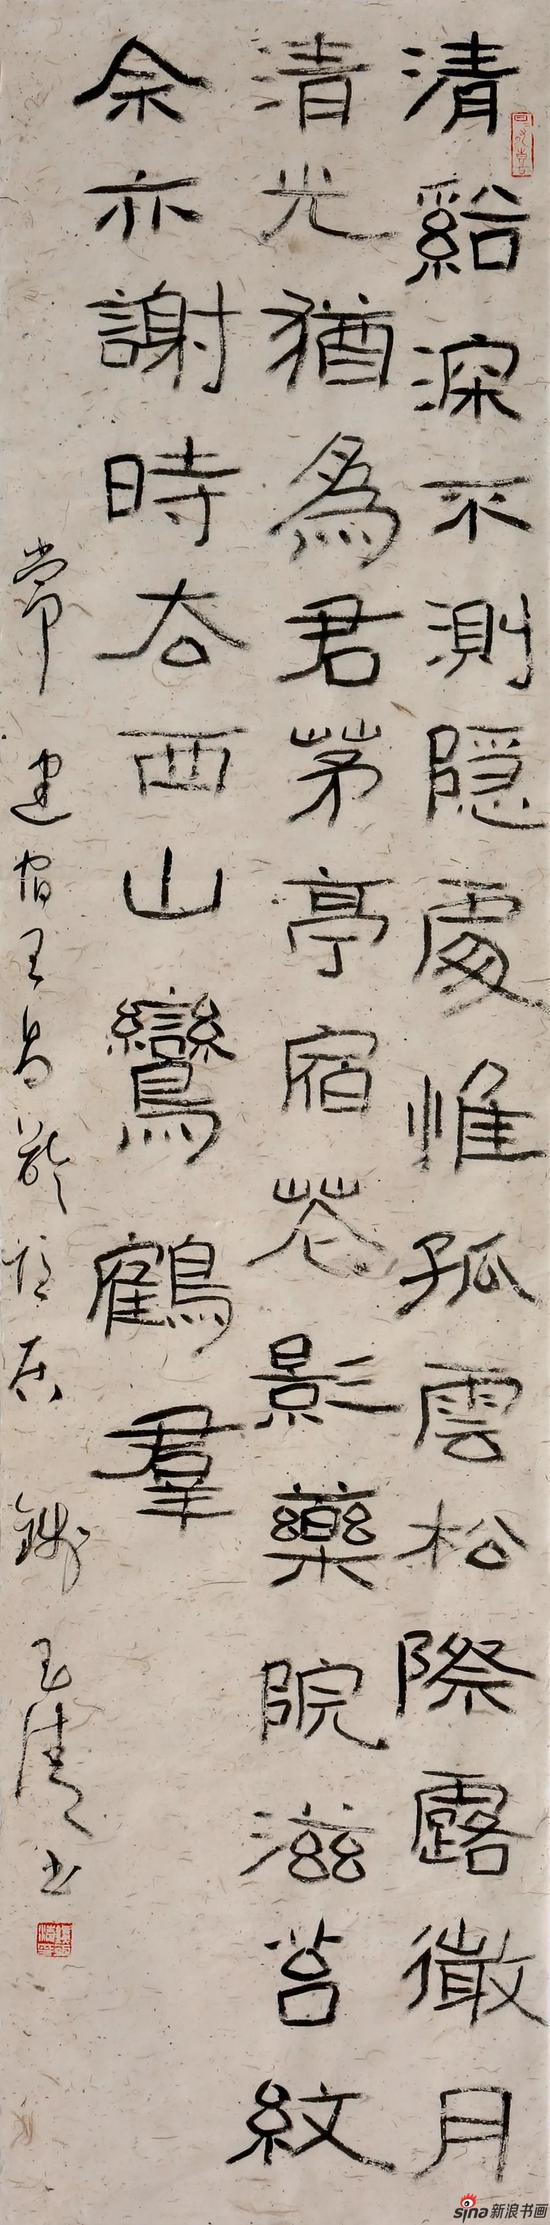 清谿深不測隱處惟孤雲松際露微月
清光猶為君茅亭宿花影藥院滋苔紋
余亦謝時去西山鸞鶴羣
常建宿王昌齡隱居 錢玉清書
sina 新浪书画